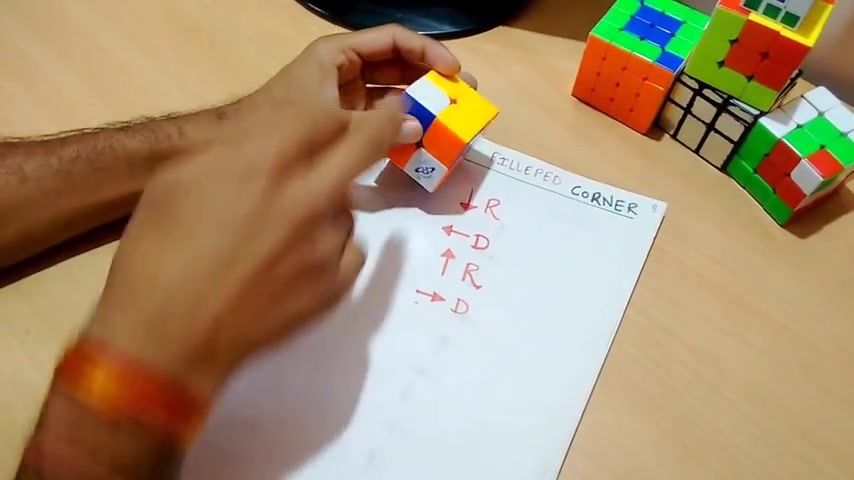 FILLEPED CORNER :
↓ R
← D
↑ R
→ D